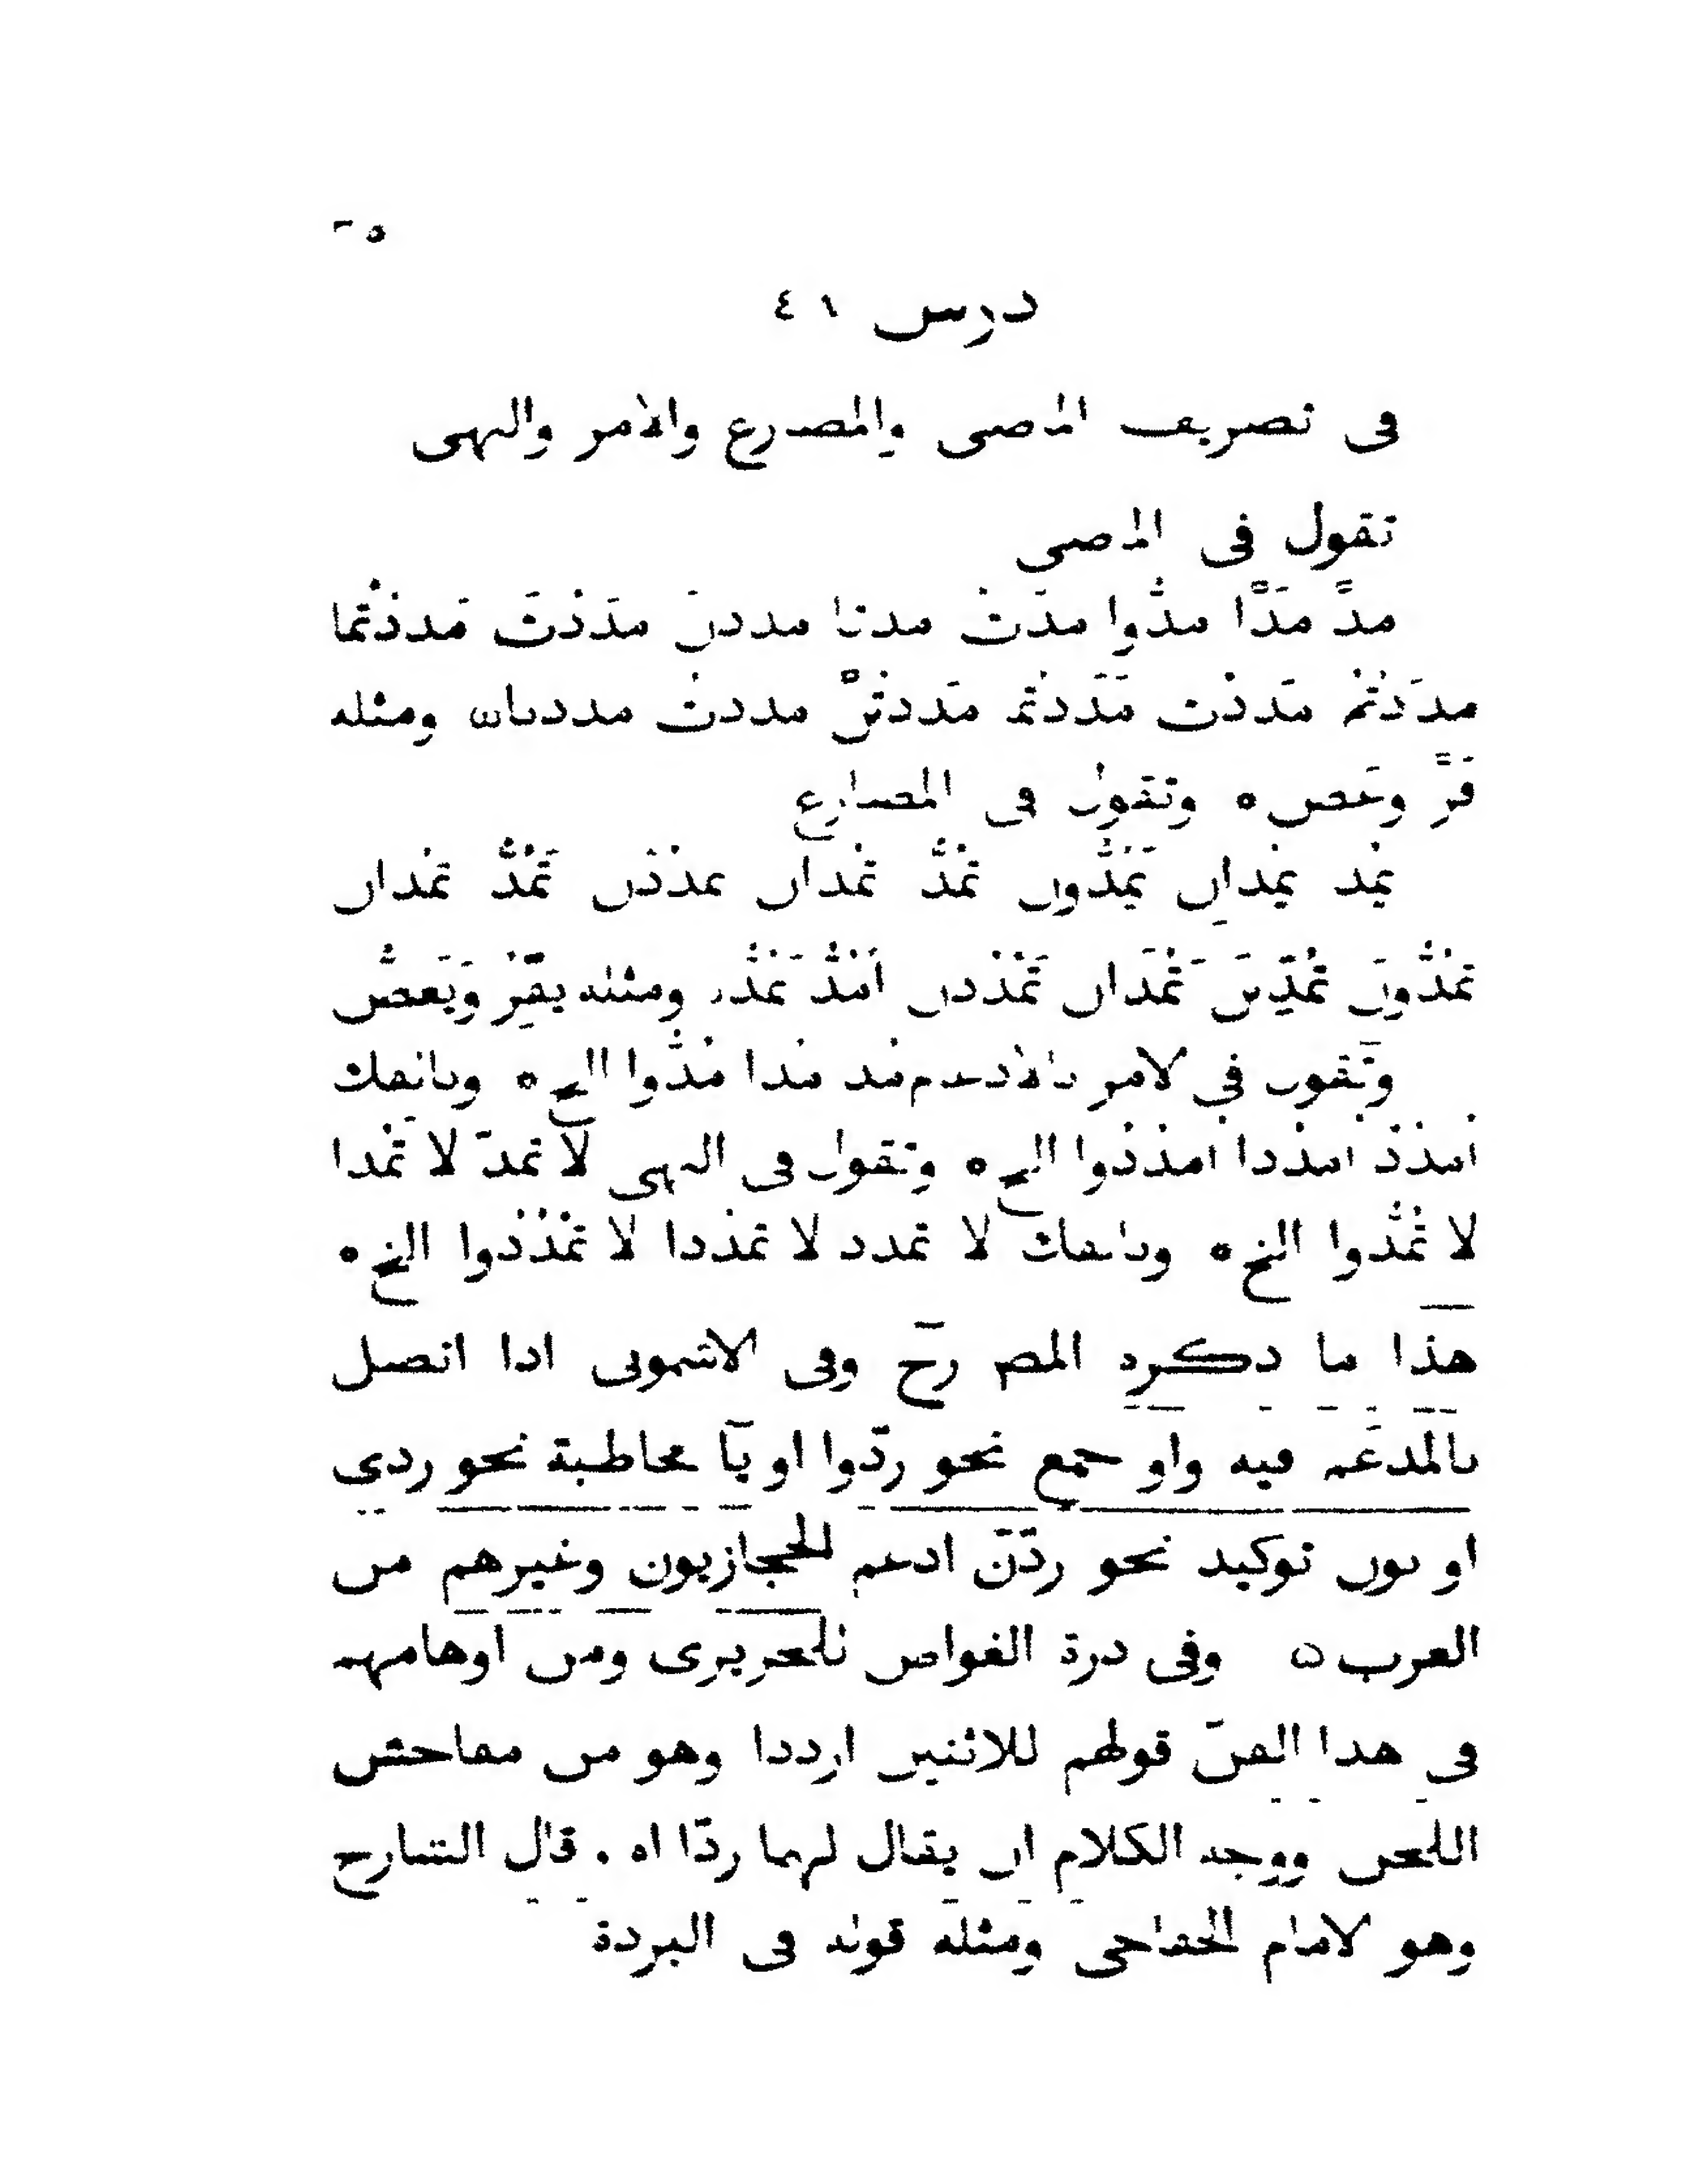 درس ٤١
فى تصريف الماضى والمضارع والامر والنهى
تقول فى الماضى
مدَّ مَدَّا مدُّوا مدَّتْ مدتا مددن مدَدْتَ مَددْتُما
مدَدْتُمْ مَددْتِ مَدَدْتُما مَددتُنَّ مددتُ مددنا ۝ ومثله
فَرَّ وعَض ۝ وتقول فى المضارع
يَمُد يَمُدانِ يَمُدُّون تَمُدُّ تَمُدان يمدُدْن تَمُدُّ تَمُدان
تَمُدُّونَ تَمُدِّينَ تَمُدَانِ تَمْدُدن اَمُدُّ نَمُدُّ ومثله يفِرّ ويَعضُّ
وتَقول في الامر بالادغام مُد مُدا مُدُّوا الخ ۝ وبالفك
اُمدُدْ امدُدا امدُدُوا الخ ۝ وتقول فى النهى لا تمدّ لا تمُدا
لا تَمُدُّوا الخ ۝ وبالفك لا تمدد لا تمدُدا لا تمْدُدُوا الخ ۝
هذا ما ذكره المص رح وفى الاشمونى اذا اتصل
بالمدغم فيه واو جمع نحو ردّوا او يآ مخاطبة نحو ردى
او نون توكيد نحو ردّنّ ادغم الحجازيون وغيرهم من
العرب ۝ وفى درة الغواص للحريرى ومن اوهامهم
فى هذا الفنّ قولهم للاثنين ارددا وهو من مفاحش
اللحن ووجه الكلام ان يقال لهما ردّا اه . قال الشارح
وهو الامام الخفاجى ومثله قوله فى البردة